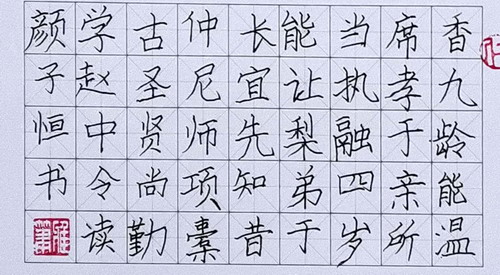 香九龄能温
席孝于亲所
当执融四岁
能让梨弟于
长宜先知昔
仲尼师项橐
古圣贤尚勤
学赵中令读
颜子恒书